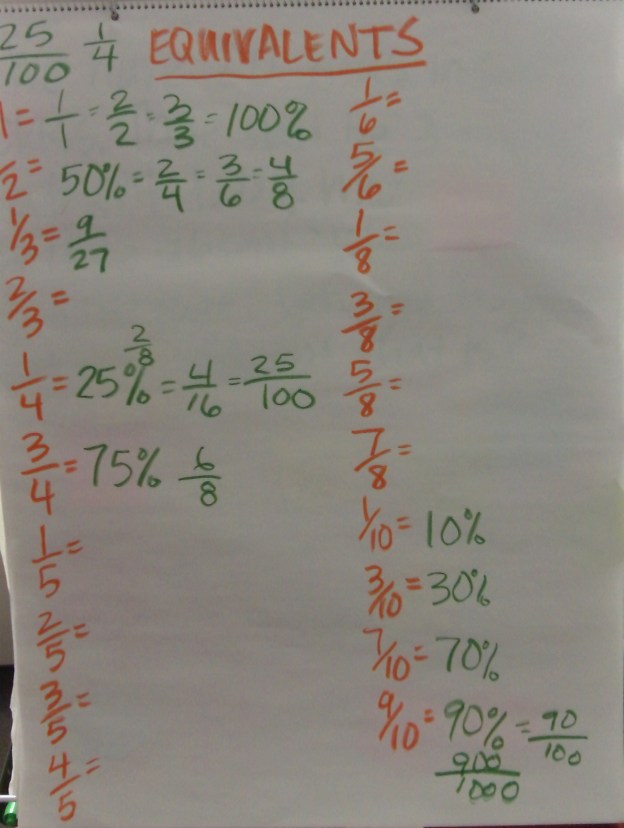 25/100 1/4 EQUIVALENTS
1 = 1/1 = 2/2 = 3/3 = 100%
1/2 = 50% = 2/4 = 3/6 = 4/8
1/3 = 9/27
2/3 =
2/8
1/4 = 25% = 4/16 = 25/100
3/4 = 75% 6/8
1/5 =
2/5 =
3/5 =
4/5 =
1/6 =
5/6 =
1/8 =
3/8 =
5/8 =
7/8 =
1/10 = 10%
3/10 = 30%
7/10 = 70%
9/10 = 90% = 90/100
900/1000